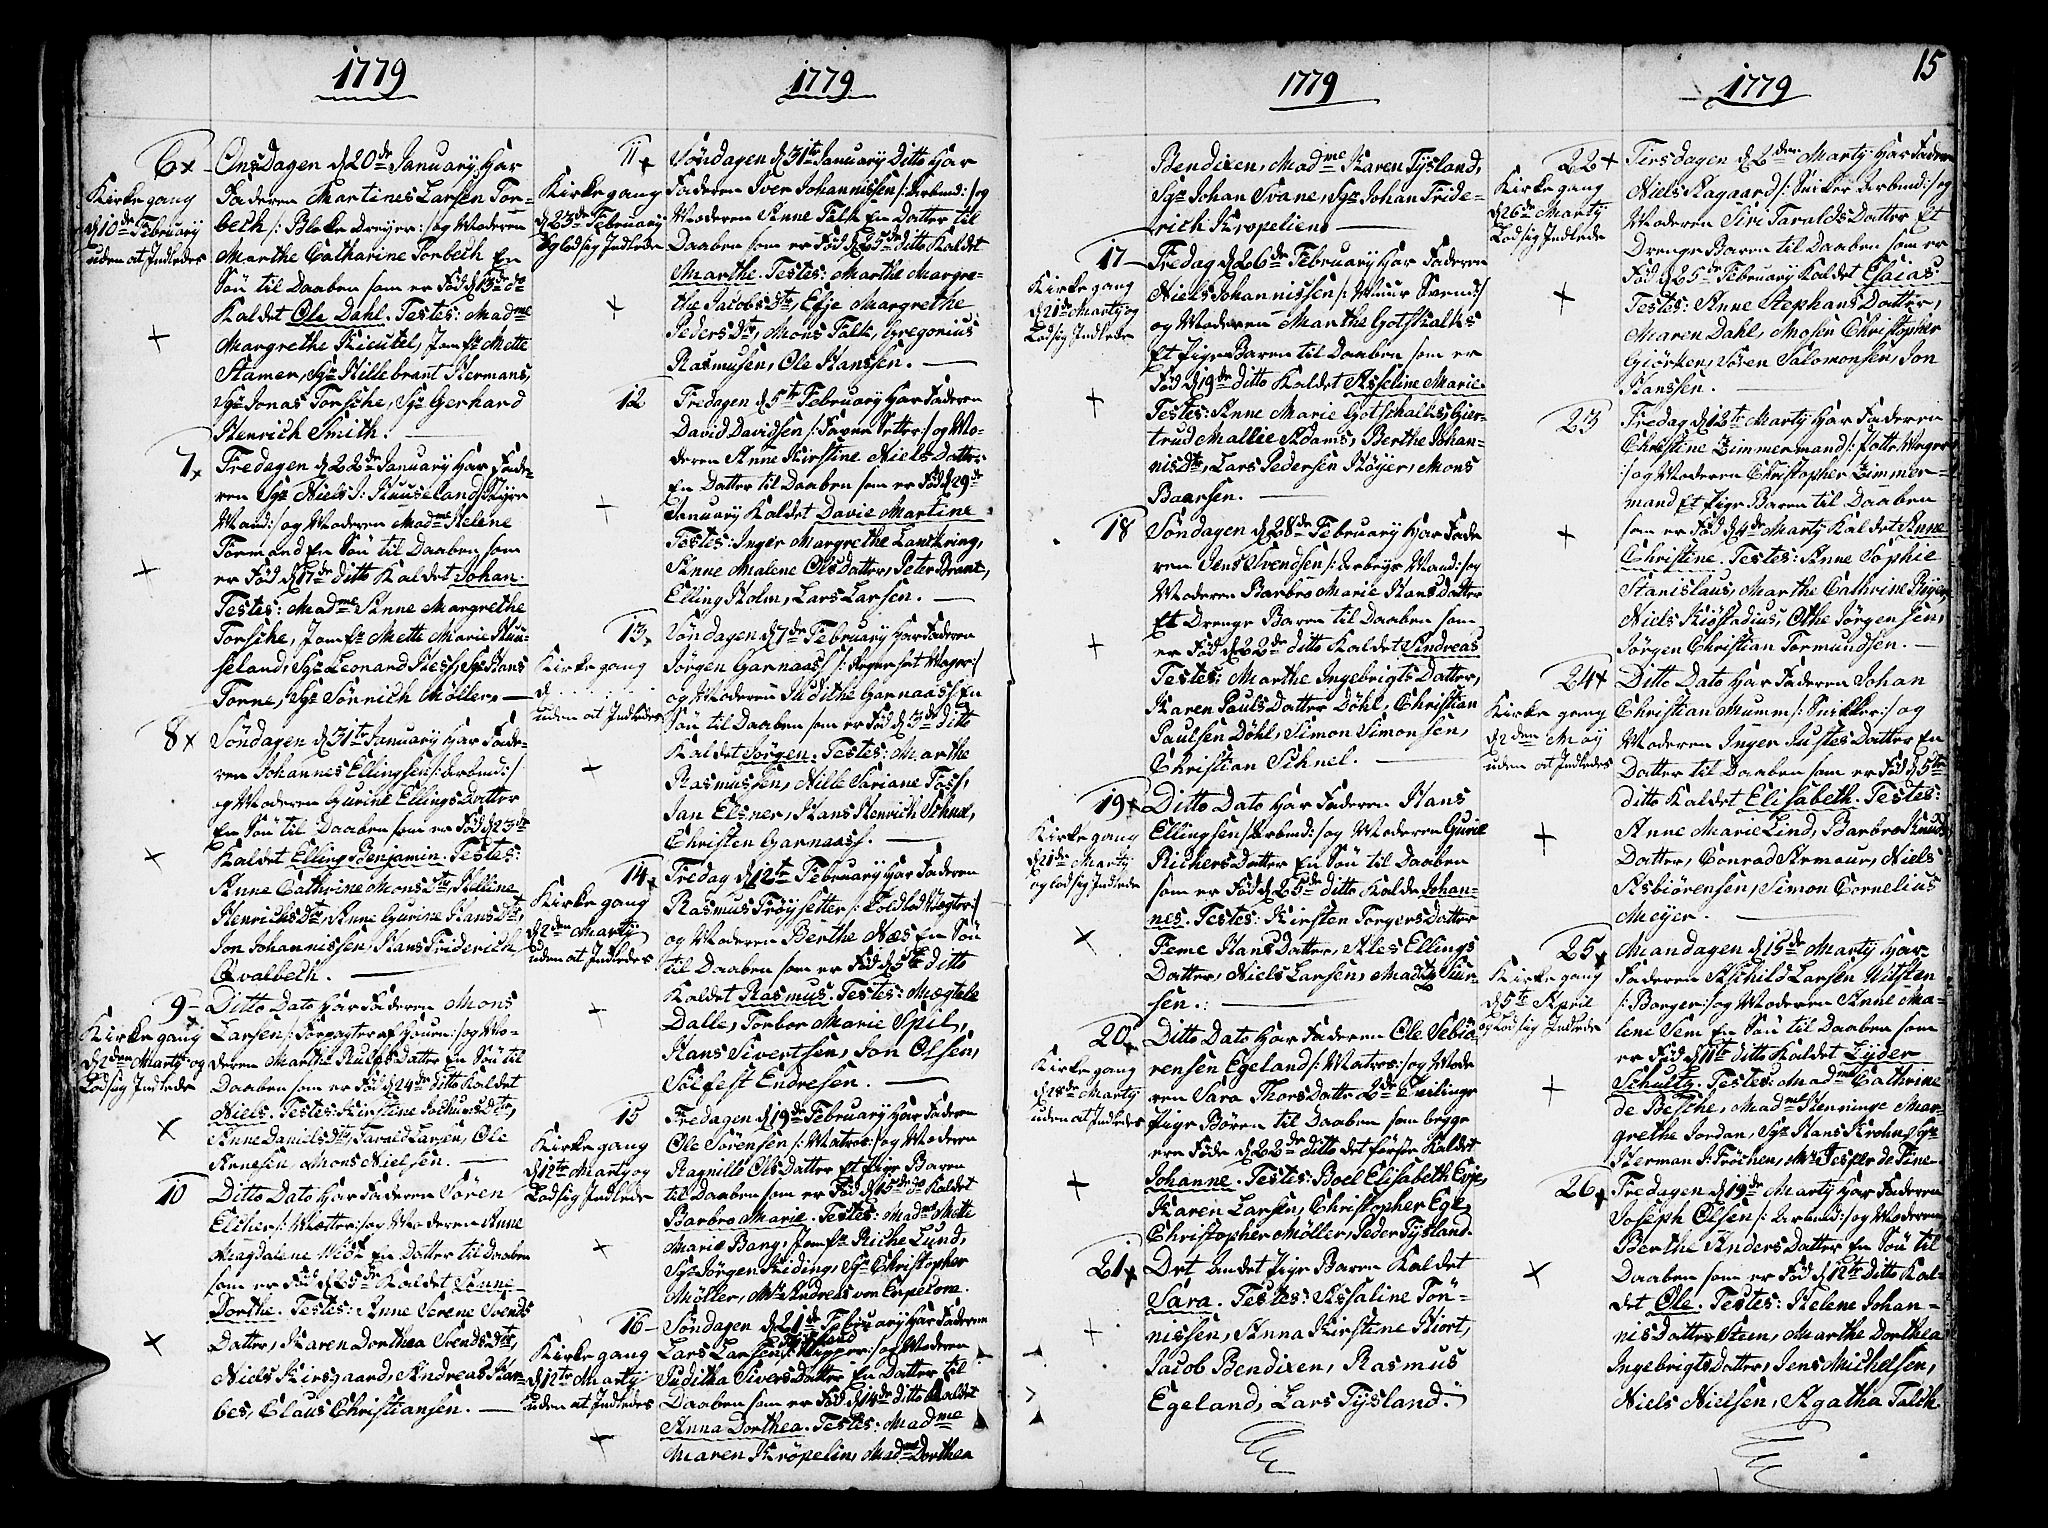 15
1779
6
Onsdagen d 20de January har
Kirkegang
d 10de February
uden at Indledes
Faderen Martines Larsen Tor-
bech /: Bloke Dreyer :/ og Moderen
Marthe Catharine Torbech En
Søn til Daaben som er Fød d 13de do
Kaldet Ole Dahl. Testes: Madme
Margrethe Kieutel, Jomfr Mette
Stamer, Sgr Hillebrant Hermans,
Sgr Jonas Torsche, Sgr Gerhard
Henrich Smith.
7
Fredagen d 22de January har Fade-
ren Sgr Niels J: Kuuseland /: Styr
Mand :/ og Moderen Madme Helene
Formand En Søn til Daaben som
er Fød d 17de ditto Kaldet Johan.
Testes: Madme Anne Margrethe
Torsche, Jomfr Mette Marie Kuu-
seland, Sgr Leonard Hess, Sgr Hans
Torne, Sgr Sønnich Möller,
8
Søndagen d 31te January har Fade-
ren Johannes Ellingsen /: Arbmd: :/
og Moderen Gurine Ellings Datter
En Søn til Daaben som er Fød d 23de
Kaldet Elling Benjamin. Testes:
Anne Cathrine Mons Dtr, Helline
Henrichsdtr, Anne Gurine Hansdtr,
Jon Johannissen, Hans Friderich
Qvalbech.
9
Kirkegang
d 2den Marty og
Lod sig Indlede
Ditto Dato har Faderen Mons
Larsen /: Forpagter af :/ og Mo-
deren Marthe Datter En Søn til
Daaben som er Fød d 24de ditto Kaldet
Niels. Testes: Kirstine Dtr,
Anne Danielsdtr, Tarald Larsen, Ole
Arnesen, Mons Nielsen.
10
Ditto Dato har Faderen Sören
Eicher /: Wægter :/ og Moderen Anne
Magdalene En Datter til Daaben
som er Fød d 25de Kaldet Anne
Dorthe. Testes: Anne Serene Svends
Datter, Karen Dorthea Svends dtr,
Niels Kirsgaard, Andreas Har-
bes, Claus Christiansen.
1779
11
Kirkegang
d 23de February
Og lod sig Indlede
Søndagen d 31te January Ditto har
Faderen Iver Johannissen /: Arbmd: :/ og
Moderen Anne Falk En Datter til
Daaben som er Fød d 25de ditto Kaldet
Marthe. Testes: Marthe Margre-
the Jacobsdtr, Elje Margrethe
Pedersdtr, Mons Falk, Gregorius
Rasmusen, Ole Hanssen.
12
Fredagen d 5te February har Faderen
David Davidsen /: Favne Setter :/ og Mo-
deren Anne Kirstine Niels Datter
En Datter til Daaben som er Fød d 29de
January Kaldet Davie Martine
Testes: Inger Margrethe Lantkring,
Anne Malene Ols Datter, Peter Brant,
Elling Holm, Lars Larsen.
13
Kirkegang
d . . . . . .
uden at Indledes
Søndagen d 7de February har Faderen
Jörgen Garnaas /: :/
og Moderen Judithe Garnaas En
Søn til Daaben som er Fød d 3de ditto
Kaldet Jørgen. Testes: Marthe
Rasmussen, Nille Sariane Foss,
Jan Elsner, Hans Henrich Schux,
Christen Garnaass.
14
Kirkegang
d 2den Marty
uden at Indledes
Fredag d 12te February har Faderen
Rasmus Frøysetter /: Toldbod Wægter :/
og Moderen Berthe Næs En Søn
til Daaben som er Fød d 5te ditto
Kaldet Rasmus. Testes: Mægtele
Dalle, Torbor Marie Spil,
Hans Sivertsen, Jon Olsen,
Solfest Endresen.
15
Kirkegang
d 12te Marty og
Lod sig Indlede
Fredagen d 19de February har Faderen
Ole Sørensen /: Matros :/ og Moderen
Ragnille Ols Datter Et Pige Baren
til Daaben som er Fød d 15de do Kaldet
Barbro Marie. Testes: Madme Mette
Marie Bang, Jomfr Riche Lund,
Sgr Jørgen Kiding, Sgr Christopher
Möller, Mr Andreas von Erpekom.
16
Kirkegang
d 12te Marty
uden at Indledes
Søndagen d 21de February har Faderen
Lars Larsen /: Skipper :/ og Moderen
Juditha Sivers Datter En Datter til
Daaben som er Fød d 14de ditto Kaldet
Anna Dorthea. Testes: Madme
Maren Krøpelin, Madme Dorthea
1779
Bendixen, Madme Karen Tysland,
Sgr Johan Svane, Sgr Johan Fride-
rich Kropelien
17
Kirkegang
d 21de Marty og
Lod sig Indlede
Fredag d 26de February har Faderen
Niels Johannissen /: Muur Svend :/
og Moderen Marthe Gotskalks
Et Pige Baren til Daaben som er
Fød d 19de ditto Kaldet Asseline Marie.
Testes: Anne Marie Gotschalks, Gier-
trud Mallie Adams, Berthe Johan-
nisdtr, Lars Pedersen Höyer, Mons
Baarsen.
18
Søndagen d 28de February har Fade
ren Jens Svendsen /: Arbeys Mand :/ og
Moderen Barbro Marie Hans Datter
Et Drenge Baren til Daaben som
er Fød d 22de ditto Kaldet Andreas
Testes: Marthe Ingebrigts Datter,
Karen Pauls Datter Döhl, Christian
Paulsen Döhl, Simon Simonsen,
Christian Schnel.
19
Kirkegang
d 21de Marty
og lod sig Indlede
Ditto Dato har Faderen Hans
Ellingsen /: Arbmd: :/ og Moderen Gurie
Richers Datter En Søn til Daaben
som er Fød d 25de ditto Kalde Johan-
nes. Testes: Kirsten Torgers Datter
Feme Hans Datter, Ales Ellings
Datter, Niels Larsen, Madts Siur-
sen.
20
Kirkegang
d 18de Marty
uden at Indledes
Ditto Dato har Faderen Ole Sebiø-
rensen Egeland /: Matros :/ og Mode
ren Sara Thors Datter 2de Tvilinge
Pige Børen til Daaben som begge
ere Føde d 22de ditto det første Kaldet
Johanne. Testes: Boel Elisabeth Evje,
Karen Larsen, Christopher Ege,
Christopher Möller, Peder Tysland.
21
Det Andet Pige Baren Kaldet
Sara. Testes: Assaline Tön-
nissen, Anna Kirstine Hiort,
Jacob Bendixen, Rasmus
Egeland, Lars Tysland.
1779
22
Kirkegang
d 26de Marty
Lod sig Indlede
Tirsdagen d 2den Marty har Faderen
Niels Aagaard /: Snicker Arbmd: :/ og
Moderen Siri Taralds Datter Et
Drenge Baren til Daaben som er
Fød d 25de February Kaldet Esaias.
Testes: Anne Stephans Datter,
Maren Dahl, Mosen Christopher
Giörken, Søren Salomonsen, Jon
Hanssen.
23
Fredag d 12te Marty har Faderen
Christine Zimmermand /: Potte Mager
:/ og Moderen Christopher Zimmer-
mand Et Pige Baren til Daaben
som er Fød d 4de Marty Kaldet Anne
Christine. Testes: Anne Sophie
Stanislaus, Marthe Cathrine Ryge,
Niels Kiöstadius, Othe Jørgensen,
Jørgen Christian Tormundsen.
24
Kirkegang
d 2den May
uden at Indledes
Ditto Dato har Faderen Johan
Christian Mumm /: Snikker :/ og
Moderen Inger Justes Datter En
Datter til Daaben som er Fød d 5te
ditto Kaldet Elisabeth. Testes:
Anne Marie Lind, Barbro Knuds
Datter, Conrad Armaur, Niels
Asbiörensen, Simon Cornelius
Meyer.
25
Kirkegang
d 5te April
og Lod sig Indlede
Mandagen d 15de Marty har
Faderen Aschild Larsen Witsten
/: Borger :/ og Moderen Anne Ma-
lene Sem En Søn til Daaben som
er Fød d 11te ditto Kaldet Lyder
Schultz. Testes: Madme Cathrine
de Besche, Madme Henninge Mar-
grethe Jordan, Sgr Hans Krohn, Sgr
Herman D: Fröchen, Mr Jesper de Fine.
26
Fredagen d 19de Marty har Faderen
Joseph Olsen /: Arbmd: :/ og Moderen
Berthe Anders Datter En Søn til
Daaben som er Fød d 12te ditto Kal-
det Ole. Testes: Helene Johan-
nis Datter Steen, Marthe Dorthea
Ingebrigts Datter, Jens Michelsen,
Niels Nielsen, Agatha Falch.